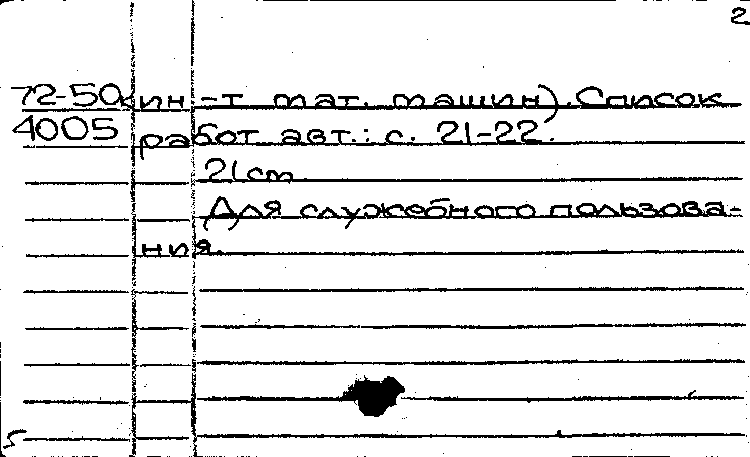 2
72-50 ин-т мат. машин). Список
4005 работ авт.: с. 21-22.
21 cm
Для служебного пользова-
ния.
5